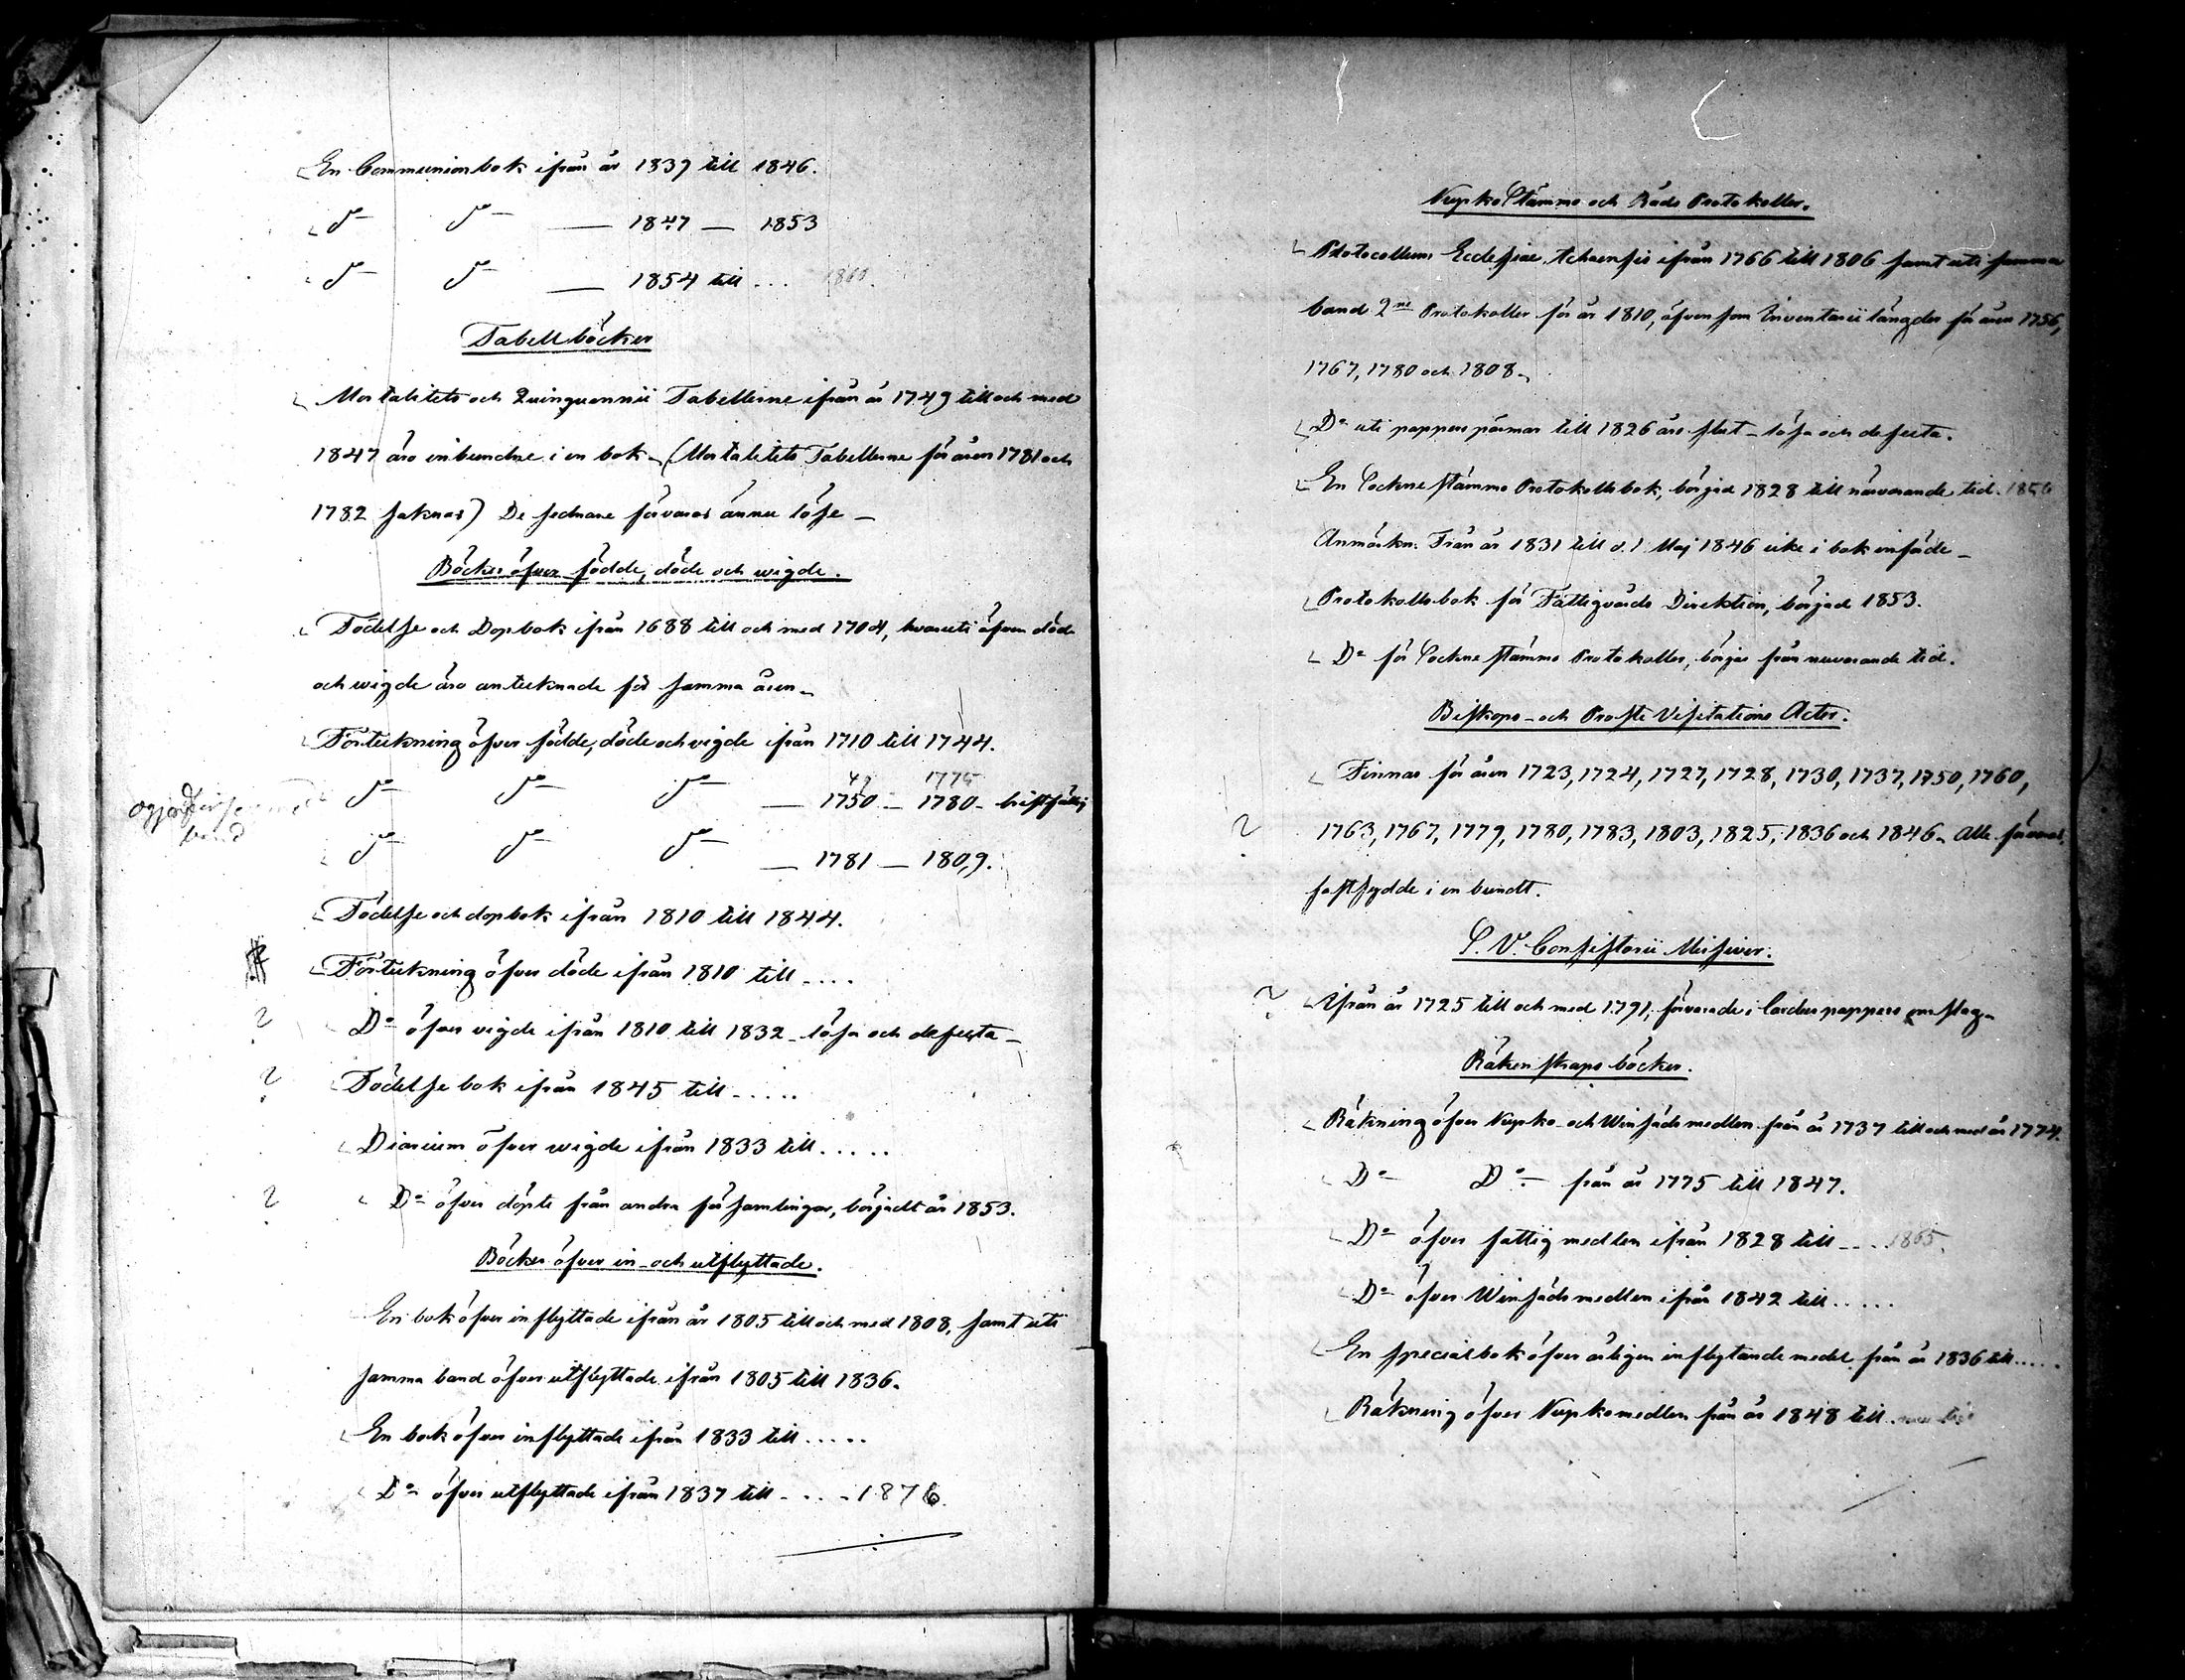 En Communionbok ifrån år 1837 till 1846.
d:o d:o — 1847 — 1853
d:o d:o — 1854 till ... 1860.
Tabellböcker
Mortalitets och Quinquennii Tabellerne ifrån år 1749 till och med
1847 äro inbundne i en bok – (Mortalitets Tabellerne för åren 1781 och
1782 saknas) De sednare förvaras ännu löse –
Böcker öfver födde, döde och wigde.
Födelse och Dopbok ifrån 1688 till och med 1704, hvaruti öfven döde
och wigde äro antecknade för samma åren –
Förteckning öfver födde, döde och vigde ifrån 1710 till 1744.
49 1774
d:o d:o d:o — 1750 — 1780 – bristfällig
band
d:o d:o d:o — 1781 — 1809.
Födelse och dopbok ifrån 1810 till 1844.
Förteckning öfver döde ifrån 1810 till ....
? D:o öfver vigde ifrån 1810 till 1832 – lösa och defecta –
? Födelsebok ifrån 1845 till .....
Diarium öfver wigde ifrån 1833 till .....
? D:o öfver döpte från andra församlingar, börjadt år 1853.
Böcker öfver in- och utflyttade.
En bok öfver inflyttade ifrån år 1805 till och med 1808, samt uti
samma band öfver utflyttade ifrån 1805 till 1836.
En bok öfver inflyttade ifrån 1833 till .....
D:o öfver utflyttade ifrån 1837 till .... 1876.
Kyrko Stämmo och Råds Protokoller.
Protocollum Ecclesiae ifrån 1766 till 1806 samt uti samma
band 2ne Protokoller för år 1810, öfvensom Inventarii längder för åren 1756,
1767, 1780 och 1808 –
D:o uti papperspärmar till 1826 års slut – lösa och defecta.
En Sockne stämmo Protokollsbok, börjad 1828 till närvarande tid. 1856
Anmärkn. Från år 1831 till d. 1 Maj 1846 icke i bok införde –
Protokollsbok för Fattigvårds Direktion, börjad 1853.
D:o för Sockne stämmo Protokoller, börjar från nuvarande tid.
Biskops- och Prosts Visitations Acter.
Finnas för åren 1723, 1724, 1727, 1728, 1730, 1737, 1750, 1760,
? 1763, 1767, 1779, 1780, 1783, 1803, 1825, 1836 och 1846 – Alle förvaras,
fastsydde i en bundt.
S. V. Consistorii Missiver.
? Ifrån år 1725 till och med 1791, förvarade i Carduspappers omslag –
Räkenskaps böcker.
Räkning öfver Kyrko- och Winsäds medlen från år 1737 till och med år 1774.
D:o D:o från år 1775 till 1847.
D:o öfver fattig medlen ifrån 1828 till .... 1865.
D:o öfver Winsäds medlen ifrån 1842 till .....
En specialbok öfver årligen inflytande medel från år 1836 till .....
Räkning öfver Kyrkomedlen från år 1848 till